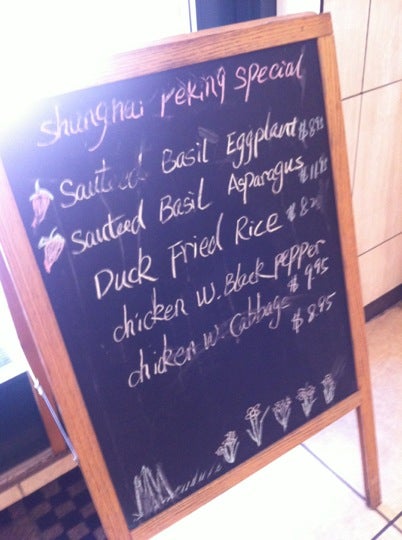 Shanghai peking special
Sauteed Basil Eggplant $8.95
Sauteed Basil Asparagus
Duck Fried Rice
chicken w. Black pepper
$9.95
chicken w. Cabbage
$8.95